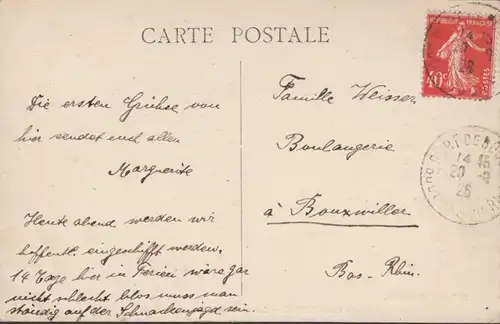 CARTE POSTALE
Die ersten Grühse von
hier sendet euch allen
Marguerite
Heute abend werden wir
hoffentl. eingeschifft werden.
14 Tage hier in Ferien wäre gar
nicht schlecht blos muss man
ständig auf der Schnackenjagd sein.
Famille Weisser
Boulangerie
à Bouxwiller
Bas-Rhin.
40c
POSTES
14 45
20 -9
26